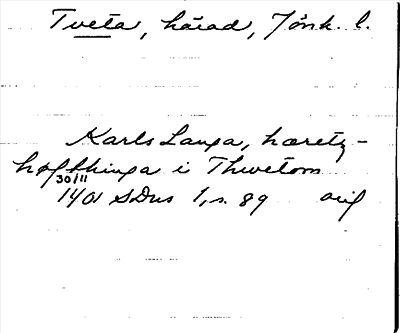 Tveta, härad, Jönk. l.
Karls Langa, hæretz-
høfthinga i Thwetom
30/11
1401 SDns 1, s. 89 orig